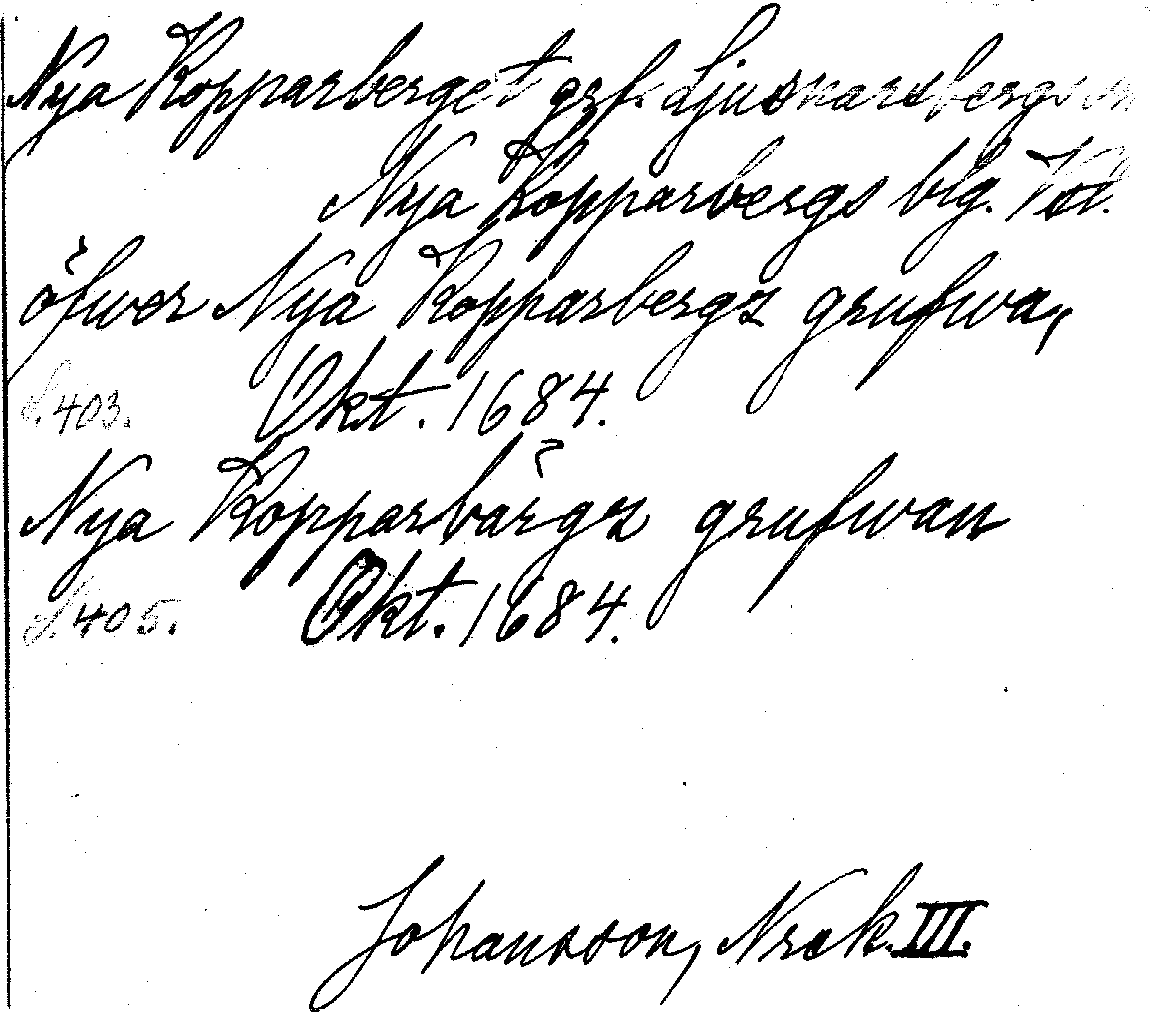 Nya Kopparberget grf. Ljusnarsbergs sn
Nya Kopparbergs blg. Vtl.
öfwer Nya Kopparbergz grufwa,
S. 403. Okt. 1684.
Nya Kopparbärgz grufwan
S. 405. Okt. 1684.
Johansson, Nrak. III.